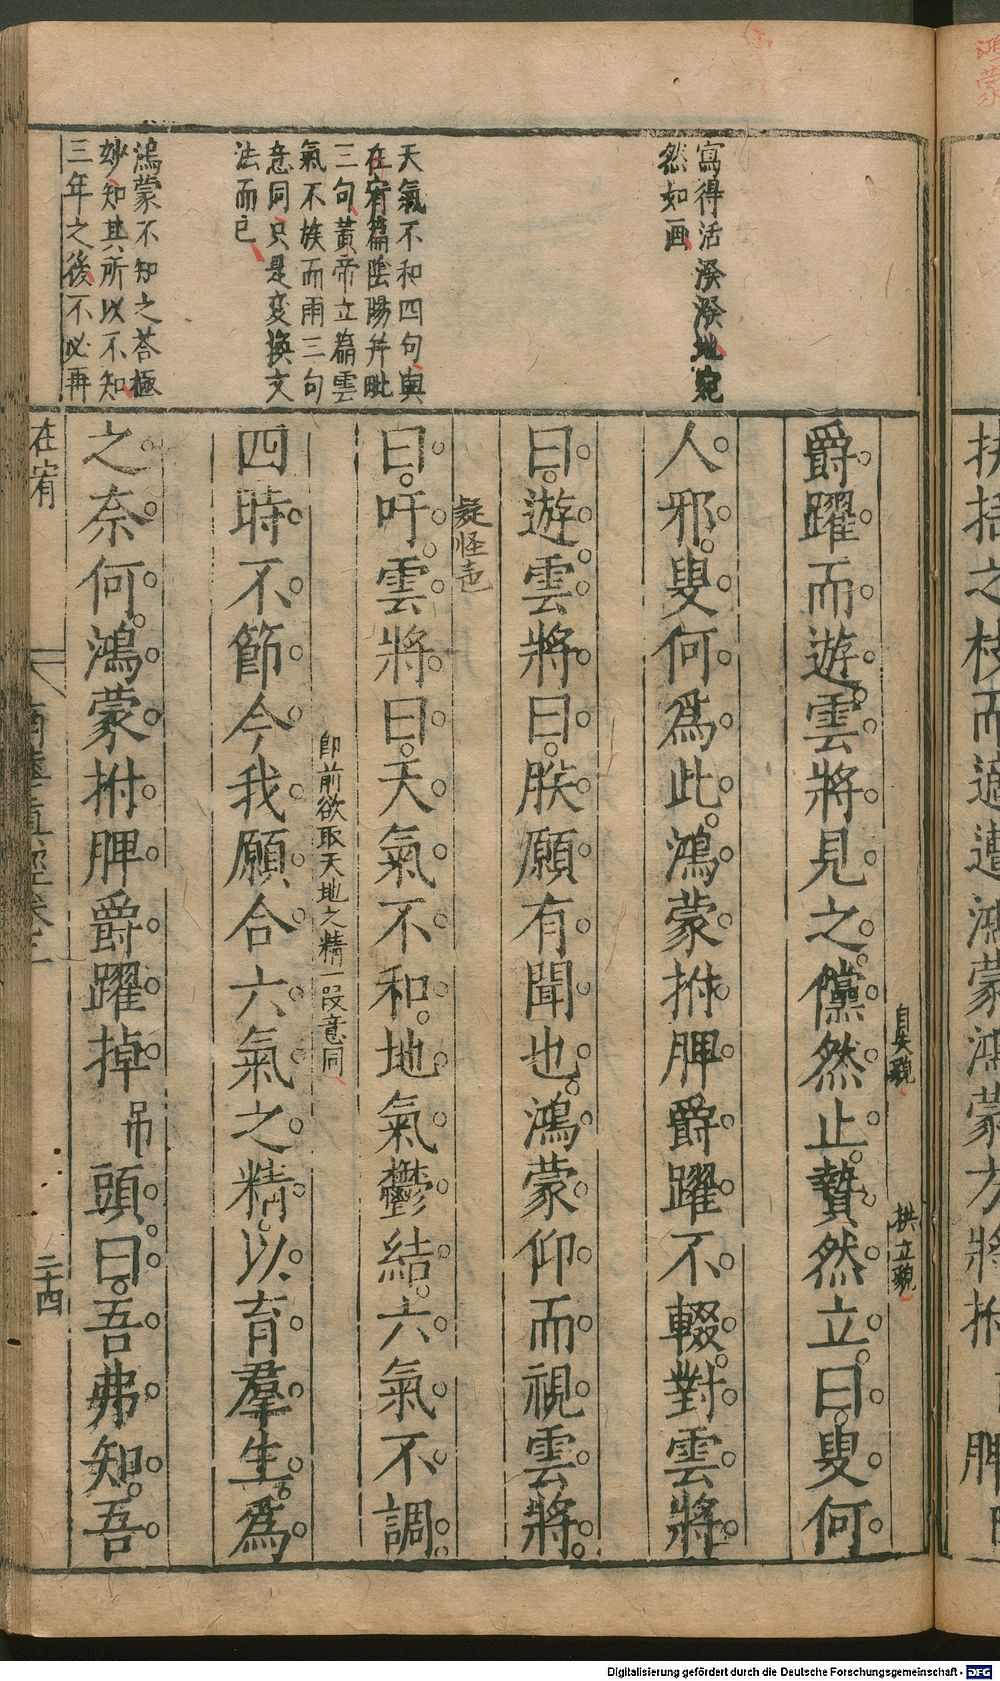 寫得活潑潑地宛
然如画
天氣不和四句與
在宥篇陰陽并毗
三句黃帝立篇雲
氣不族而雨三句
意同只是变換文
法而已
鴻蒙不知之荅極
妙知其所以不知
三年之後不必再
自失貌
拱立貌
爵躍而遊雲將見之儻然止贄然立曰叟何
人邪叟何爲此鴻蒙拊脾爵躍不輟對雲將
曰遊雲將曰朕願有聞也鴻蒙仰而視雲將
疑怪志
曰吁雲將曰天氣不和地氣鬱結六氣不調
即前欲取天地之精一段意同
四時不節今我願合六氣之精以育羣生爲
之奈何鴻蒙拊脾爵躍掉吊頭曰吾弗知吾
在宥
南華真經卷三
二十四
鴻蒙
扶搖之枝而過遭鴻蒙鴻蒙方將拊
脾
Digitalisierung gefördert durch die Deutsche Forschungsgemeinschaft - DFG